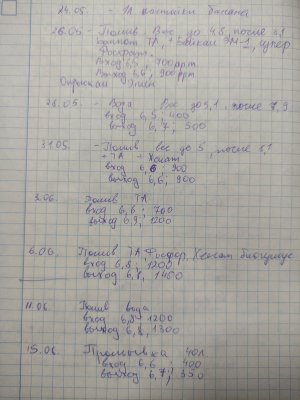 24.05. - ТА настойки банана
26.05 - Полив Вес до 4,8, после 6,1
ТА, + Байкал ЭМ-1, супер
Фосфат.
Вход 6,5, 700 ppm
Выход 6,6, 900 ppm
Опрыскал Эпин
28.05. - Вода Вес до 5,1, после 7,9
вход 6,5, 400
выход 6,7, 500
31.05 - Полив вес до 5, после 6,1
+ ТА + Хелат
вход 6,6; 900
выход 6,6, 900
3.06. Полив ТА
вход 6,6; 700
выход 6,9, 1200
6.06. Полив, ТА Фосфор, Хелат
вход 6,8, 1200
выход 6,8, 1450
11.06 Полив вода
вход 6,5 1200
выход 6,8, 1300
15.06. Промывка 40л
вход 6,6; 400
выход 6,7, 550